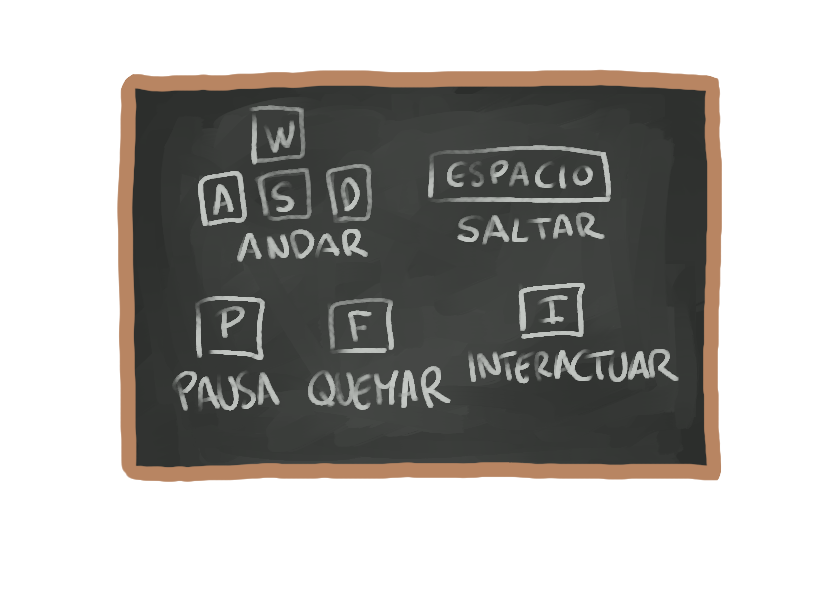 W
A S D
ANDAR
ESPACIO
SALTAR
P
PAUSA
F
QUEMAR
I
INTERACTUAR